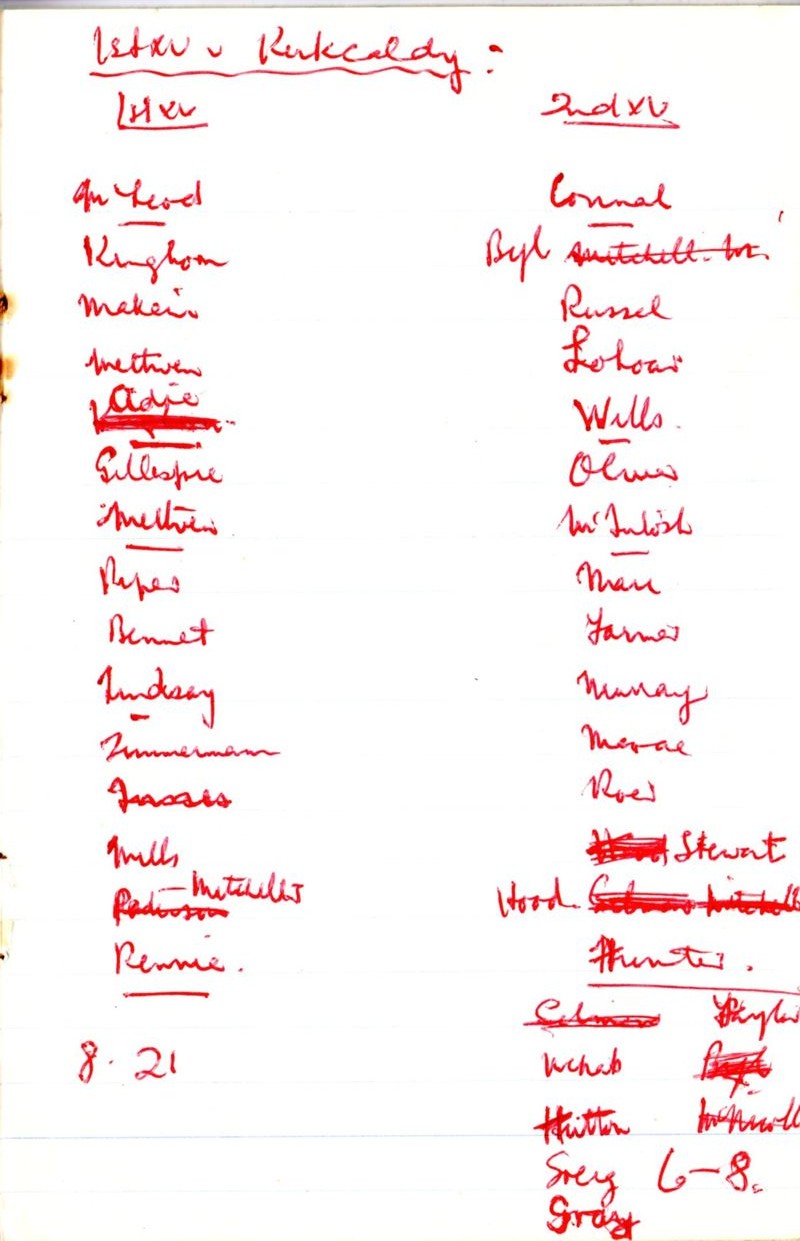 1st XV v Kirkcaldy:
1st XV
2nd XV
McLeod
Kinghorn
Makein
Methven
Adie
Gillespie
Methven
Piper
Bennet
Lindsay
Zimmermann
Mills
Mitchell
Rennie.
8. 21
Connal
Bell Mitchell. W.
Russel
Wills.
Oliver
McIntosh
Marr
Farmer
Murray
McRae
Stewart
Hood
Hunter.
McNab
Hutton McNicoll
Greig 6-8.
Gray